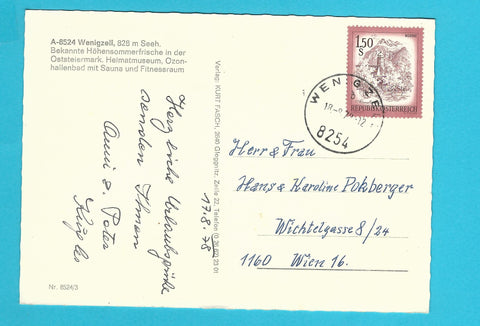 A-8524 Wenigzell, 828 m Seeh.
Bekannte Höhensommerfrische in der
Oststeiermark. Heimatmuseum, Ozon-
hallenbad mit Sauna und Fitnessraum
Verlag: KURT TASCH, 2640 Gloggnitz, Zeile 22, Telefon (0 26 62) 23 01
17.8.78
Herzliche Urlaubsgrüße
senden Ihnen
Anni & Peter
1.50
S
REPUBLIK ÖSTERREICH
WENIGZELL
8254
Herr & Frau
Hans & Karoline Pokberger
Wichtelgasse 8/24
1160 Wien 16.
Nr. 8524/3